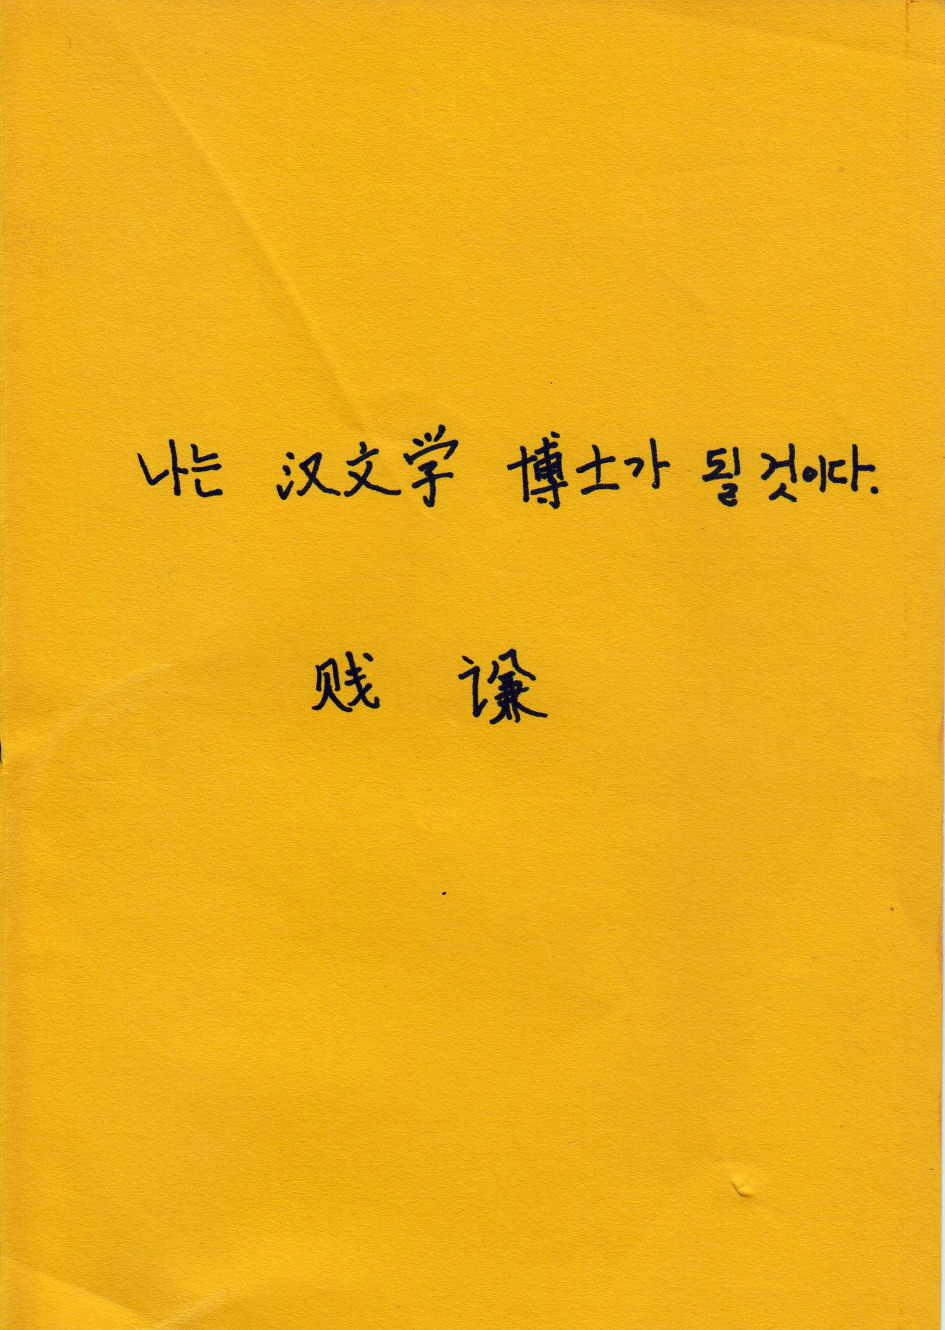 나는 汉文学 博士가 될 것이다.
贱 谦